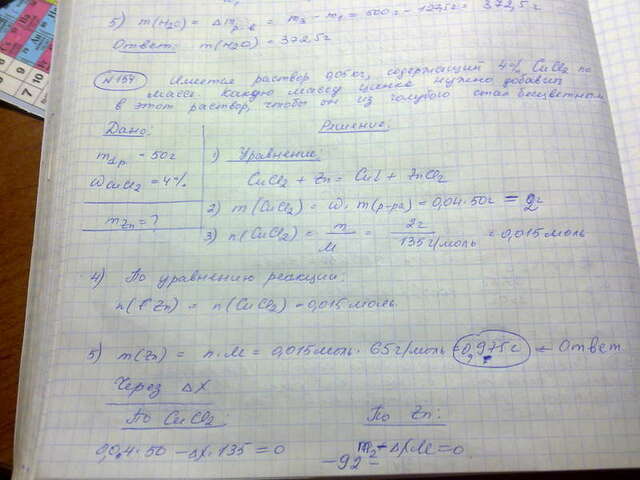 5) m(H2O) = Δm р-в = m3 - m1 = 500г - 127,5г = 372,5г
Ответ: m(H2O) = 372,5г
№154 Имеется раствор 0,05 кг, содержащий 4% CuCl2 по
массе. Какую массу цинка нужно добавить
в этот раствор, чтобы он из голубого стал бесцветным
Дано: Решение:
m1р = 50г
ω CuCl2 = 4%
m Zn = ?
1) Уравнение:
CuCl2 + Zn = Cu↓ + ZnCl2
2) m(CuCl2) = ω · m(р-ра) = 0,04·50г = 2г
3) n(CuCl2) = m/M = 2г/135г/моль = 0,015моль
4) По уравнению реакции:
n(Zn) = n(CuCl2) = 0,015моль
5) m(Zn) = n·M = 0,015моль · 65г/моль = 0,975г ← Ответ
Через ΔX
По CuCl2: По Zn:
0,04·50 - ΔX·135 = 0 m2 - ΔX·M = 0
- 92 -